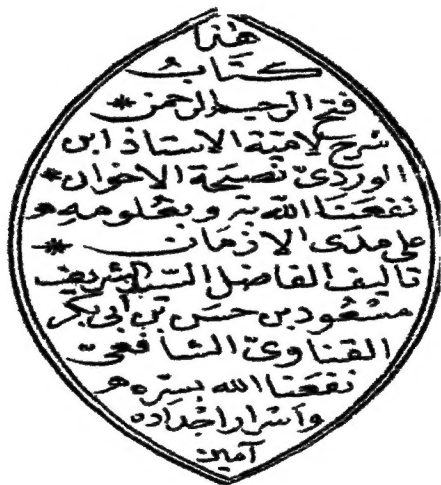 هذا
كتاب
فتح الرحيم الرحمن *
شرح لامية الاستاذ ابن
الوردى نصيحة الاخوان *
نفعنا الله به وبعلومه
على مدى الازمان *
تاليف الفاضل السيد الشريف
مسعود بن حسن بن أبى بكر
القناوى الشافعى
نفعنا الله بسره
وأسرار اجداده
آمين